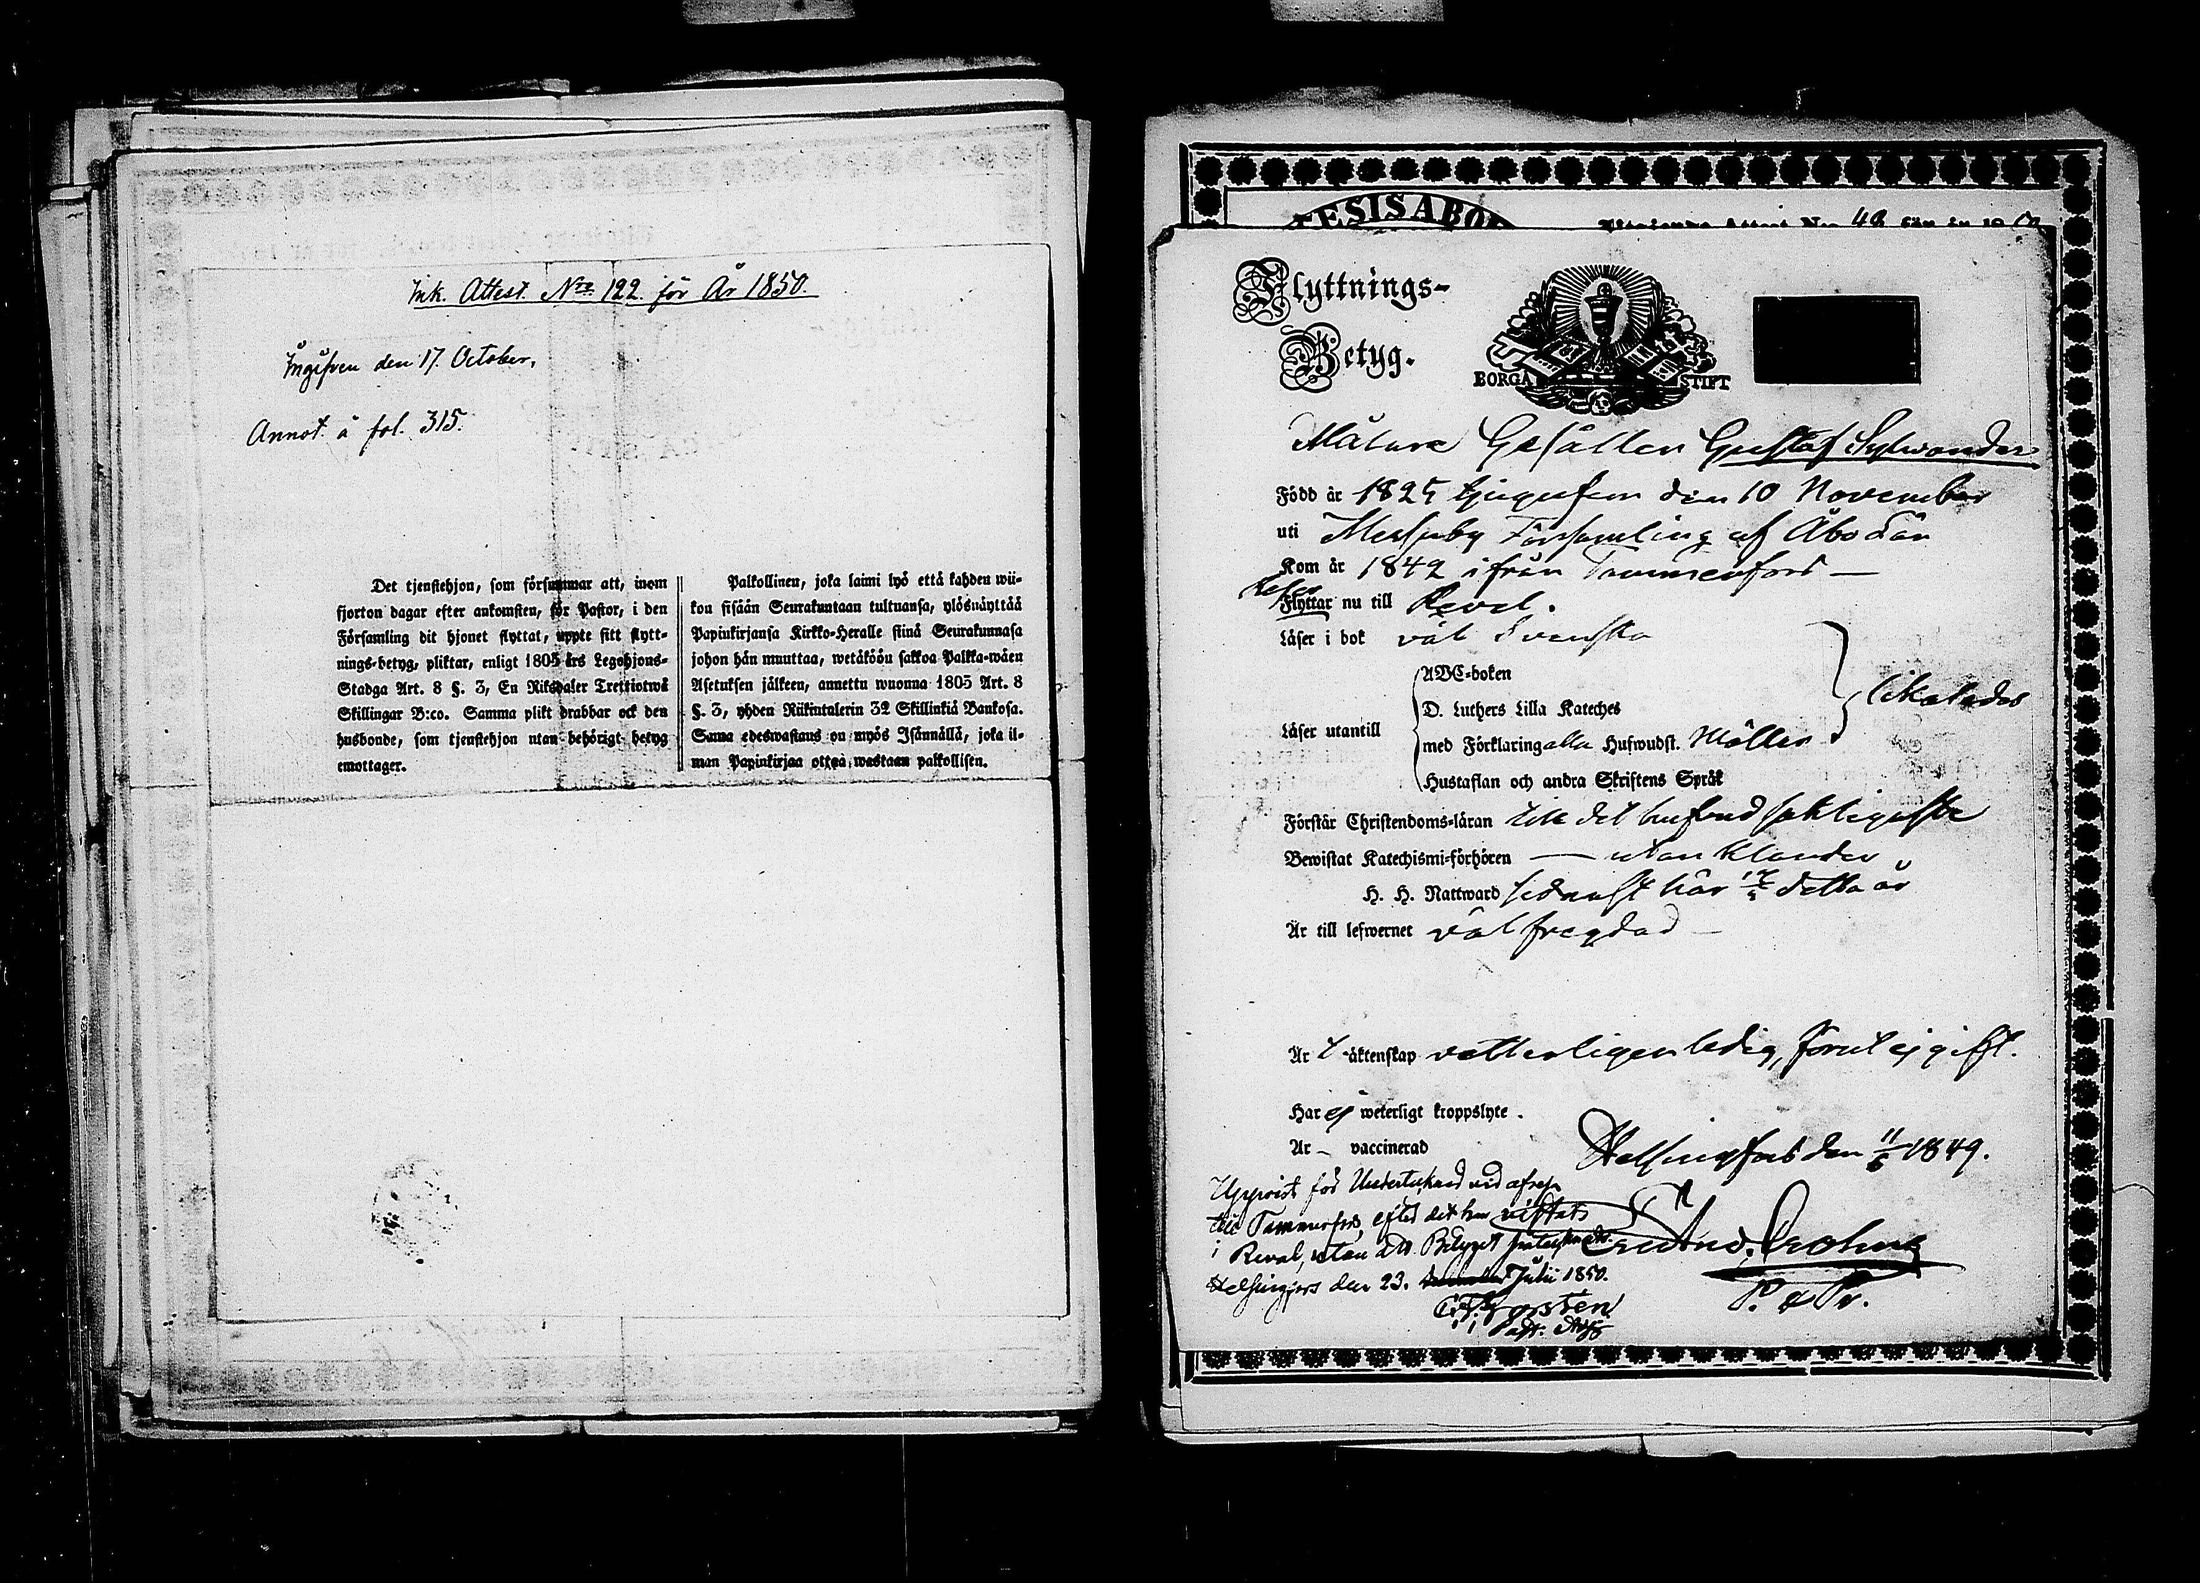 Ink. Attest. Nro 122. för År 1850.
Ingifven den 17. October.
Annot. å fol. 315.
Det tjenstehjon, som försummar att, inom
fjorton dagar efter ankomsten, för Pastor, i den
Församling dit hjonet flyttat, uppte sitt flytt-
nings-betyg, pliktar, enligt 1805 års Legohjons-
Stadga Art. 8 §. 3, En Riksdaler Trettiotwå
Skillingar B:co. Samma plikt drabbar ock den
husbonde, som tjenstehjon utan behörigt betyg
emottager.
Palkollinen, joka laimi lyö että kahden wii-
kon sisään Seurakuntaan tultuansa, ylösnäyttää
Papinkirjansa Kirkko-Heralle siinä Seurakunnasa
johon hän muuttaa, wetäköön sakkoa Palkka-wäen
Asetuksen jälkeen, annettu wuonna 1805 Art. 8
§. 3, yhden Riikintalerin 32 Skillinkiä Bankosa.
Sama edeswastaus on myös Isännällä, joka il-
man Papinkirjaa ottaa wastaan palkollisen.
TESIS ABO
Attest Nro 48 för år 18
Flyttnings-
Betyg.
BORGÅ STIFT
Målare Gesällen Gustaf Sylwander
Född år 1825 tjugufem den 10 November
uti Messuby Församling af Åbo Län
Kom år 1842 ifrån Tammerfors
Reser
Flyttar nu till Reval.
Läser i bok väl Svenska
ABC-boken
D. Luthers Lilla Kateches
Läser utantill
med Förklaring alla Hufwudst.
Hustaflan och andra Skriftens Språk
Förstår Christendoms-läran till det hufvudsakligaste
Bewistat Katechismi-förhören — utan klander
H. H. Nattward sednast här detta år
Är till lefwernet väl frejdad
Är i äktenskap vetterligen ledig, förut ej gift.
Har ej weterligt kroppslyte.
Är — vaccinerad
Helsingfors den 11/6 1849.
Uppvist för Undertecknad vid afresa
till Tammerfors, efter det han vistats
i Reval, utan att Betyget
Helsingfors den 23. Julii 1850.
P. &